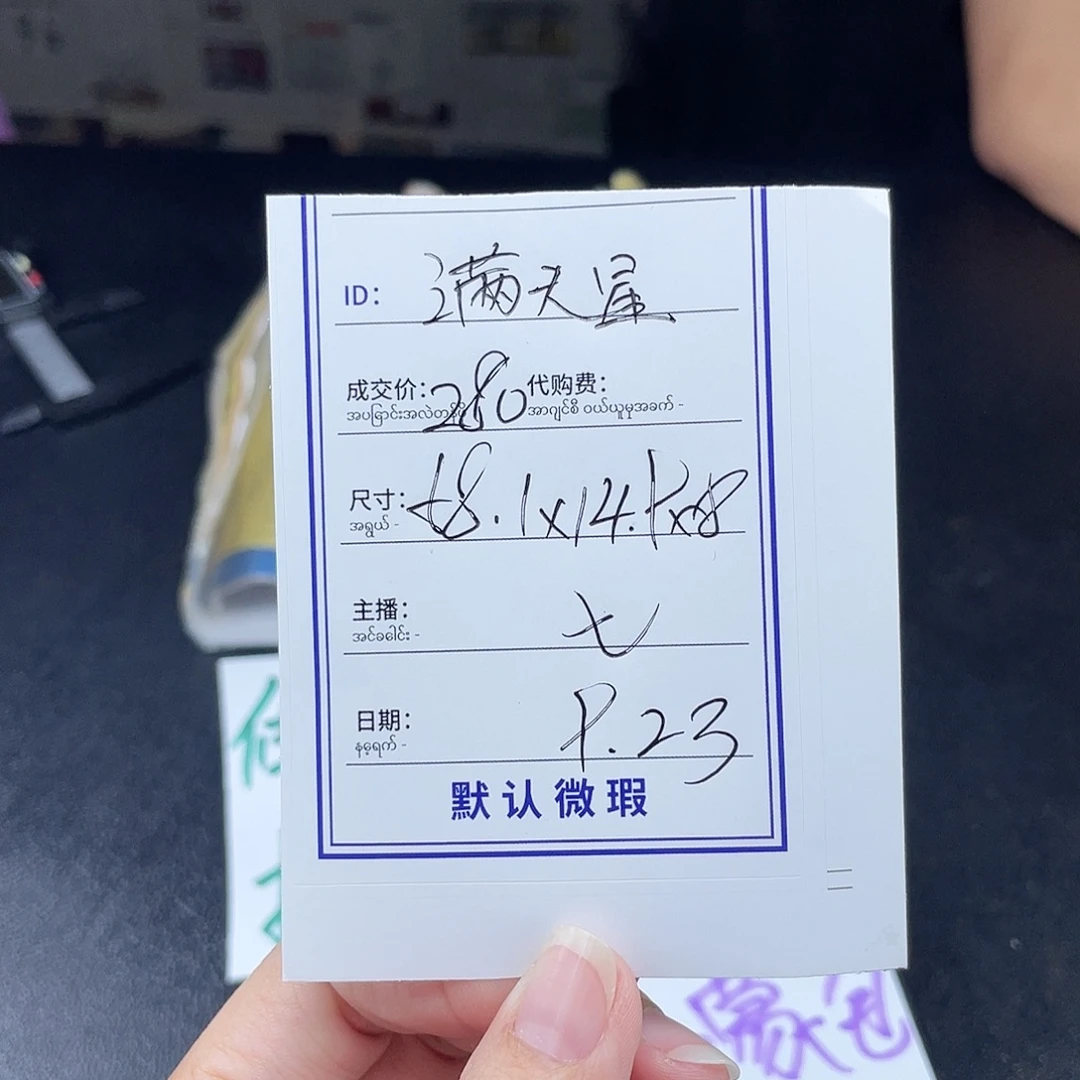 ID: 满天星
成交价: 280 代购费:
အပြောင်းအလဲတန်ဖိုး အာဂျင်စီ ဝယ်ယူမှုအခက် -
尺寸: 58.1x14.1x8
အရွယ် -
主播: 七
အင်ခခေါင်း -
日期: 9.23
နေ့ရက် -
默认微瑕